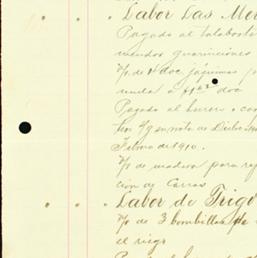 Labor Las Mer
Pagado al talabarte
guarniciones
V/. de 1 doc jáquimas p
a $1.25 doc
Pagado al herrero a con
su nota de Dicbre
Febrero de 1910.
V/. de madera para rep
ción de Carros
Labor de Trigo
V/. de 3 bombillas pa
el riego